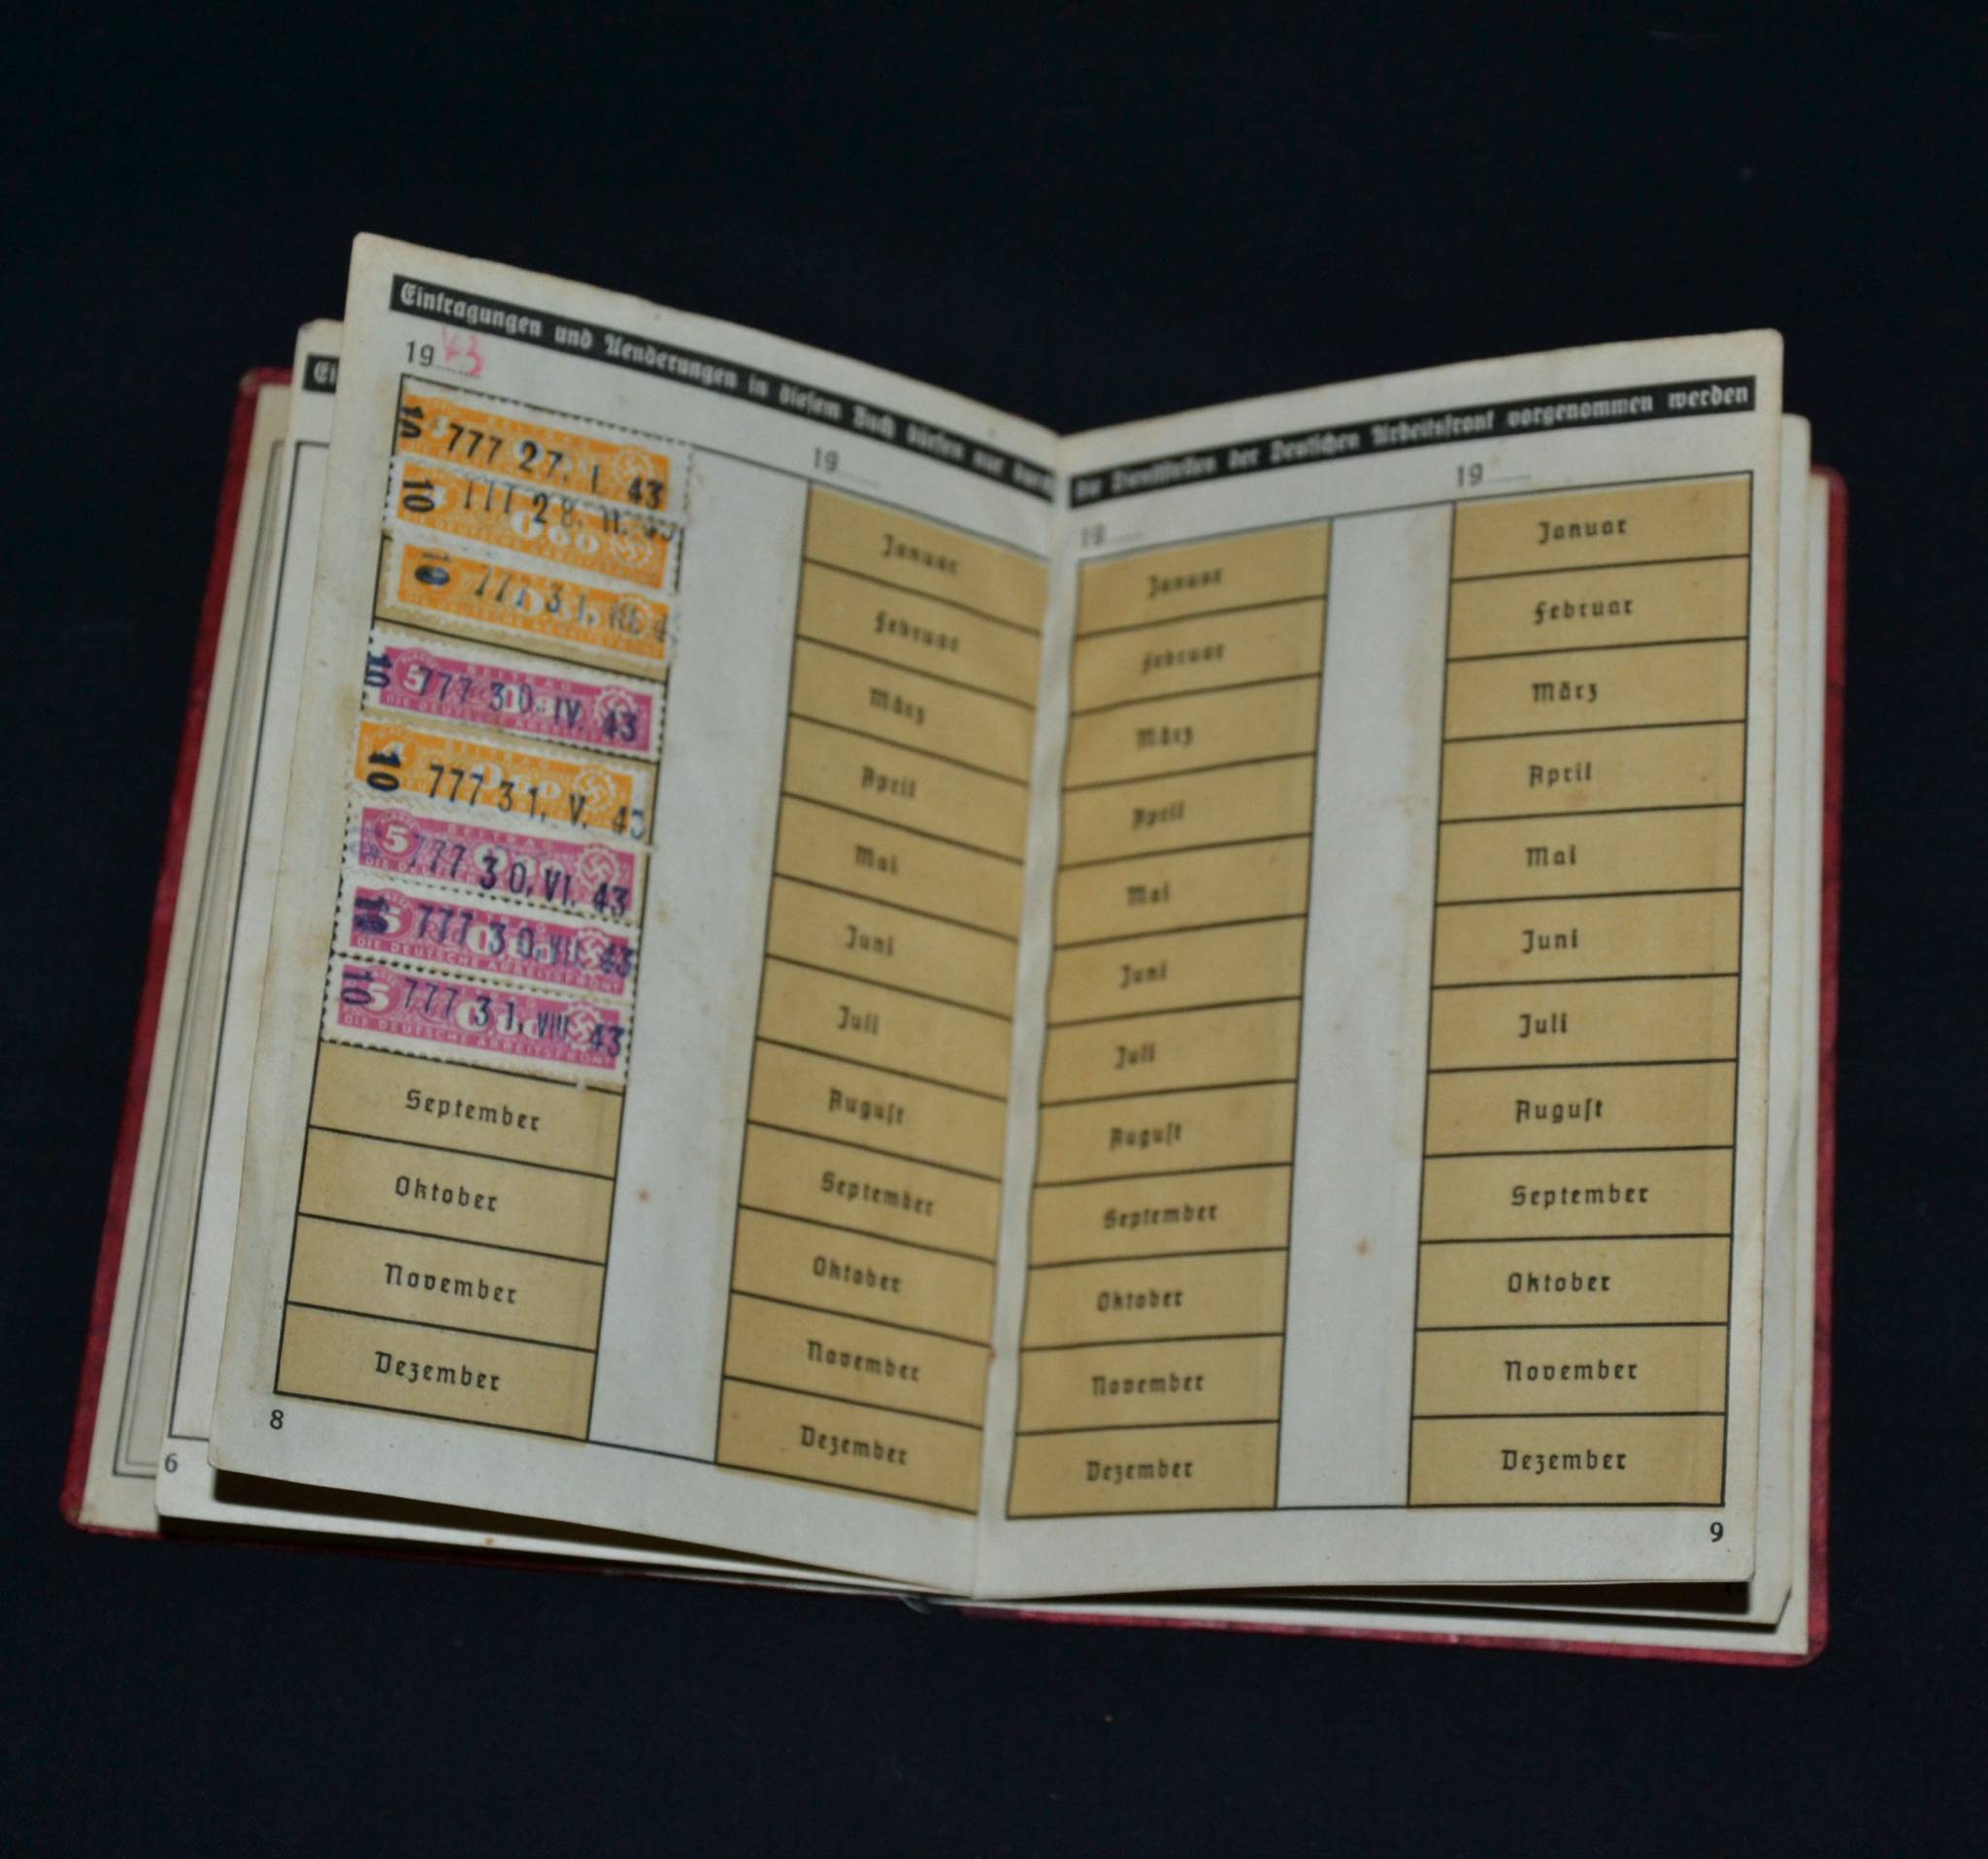 Eintragungen und Aenderungen in diesem Buch dürfen nur durch
Ei
19 43
10 777 27. I. 43
10 777 28. II. 43
0.60
10 777 31. III. 4
10 5 777 30. IV. 43
BEITRAG
10 4 777 31. V. 43
BEITRAG
5 777 30. VI. 43
BEITRAG
10 5 777 30. VII. 43
DIE DEUTSCHE ARBEITSFRONT
10 5 777 31. VIII. 43
DIE DEUTSCHE ARBEITSFRONT
September
Oktober
November
Dezember
8
6
19
Januar
Februar
März
April
Mai
Juni
Juli
August
September
Oktober
November
Dezember
die Dienststellen der Deutschen Arbeitsfront vorgenommen werden
19
Januar
Februar
März
April
Mai
Juni
Juli
August
September
Oktober
November
Dezember
19
Januar
Februar
März
April
Mai
Juni
Juli
August
September
Oktober
November
Dezember
9